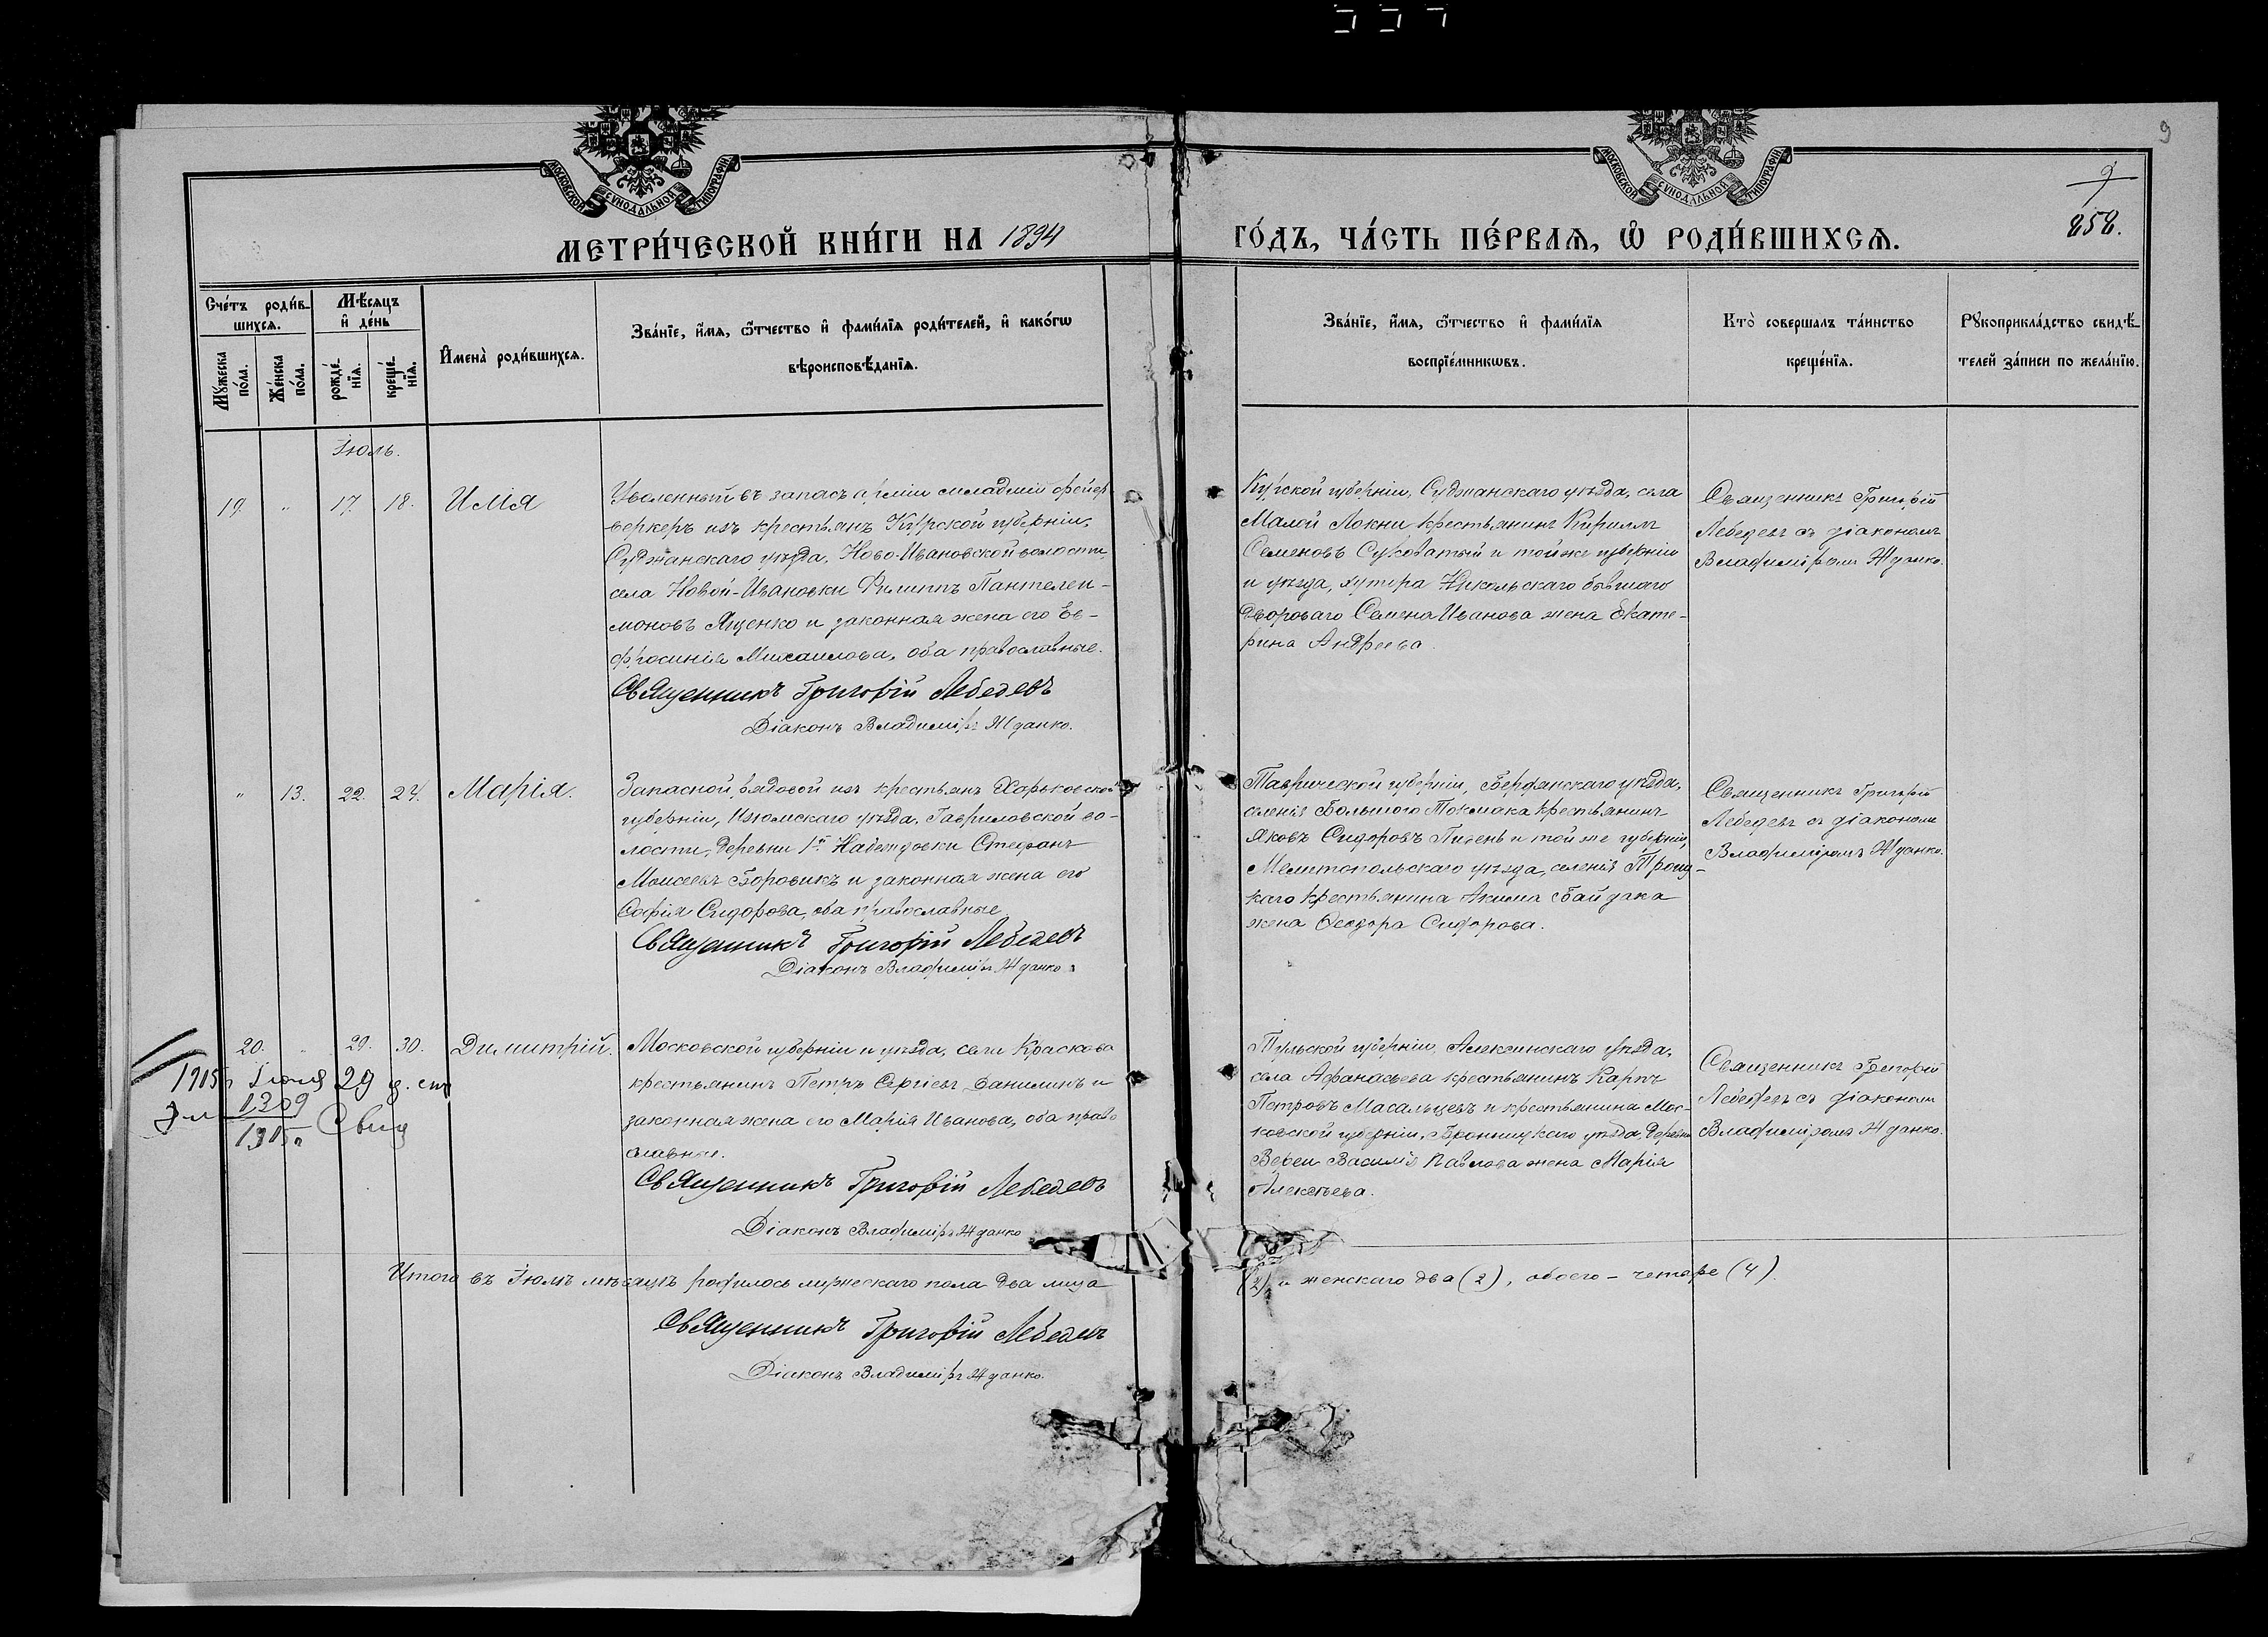 9
9
858.
МОСКОВСКОЙ СѴНОДАЛЬНОЙ ТИПОГРАФІИ
МОСКОВСКОЙ СѴНОДАЛЬНОЙ ТИПОГРАФІИ
МЕТРИ́ЧЕСКОЙ КНИ́ГИ НА 1894 ГО́ДЪ, ЧА́СТЬ ПЕ́РВАѦ, Ѽ РОДИ́ВШИХСѦ.
Сче́тъ роди́в-
шихсѧ.
Мꙋ́жеска
по́ла.
Же́нска
по́ла.
Мѣ́сѧцъ
и҆ де́нь
рожде́-
нїѧ.
креще́-
нїѧ.
И҆мена̀ роди́вшихсѧ.
Зва́нїе, и҆́мѧ, ѻ҆́тчество и҆ фами́лїѧ роди́телей, и҆ како́гѡ
вѣроисповѣ́данїѧ.
Зва́нїе, и҆́мѧ, ѻ҆́тчество и҆ фами́лїѧ
воспрїе́мникѡвъ.
Кто̀ совершалъ та́инство
креще́нїѧ.
Рꙋкоприкла́дство свидѣ́-
телей за́писи по жела́нїю.
Іюль.
19. " 17. 18. Илія
Уволенный въ запасъ арміи младшій фейер-
веркеръ изъ крестьянъ Курской губерніи,
Суджанскаго уѣзда, Ново-Ивановской волости,
села Новой-Ивановки Филиппъ Пантелеи-
моновъ Ященко и законная жена его Ев-
фросинія Михаилова, оба православные.
Священникъ Григорій Лебедевъ
Діаконъ Владиміръ Жданко.
Курской губерніи, Суджанскаго уѣзда, села
Малой Локни крестьянинъ Кириллъ
Семеновъ Суховатый и той же губерніи
и уѣзда, хутора Никольскаго бывшаго
двороваго Семена Иванова жена Екате-
рина Андреева.
Священникъ Григорій
Лебедевъ съ діакономъ
Владиміромъ Жданко.
" 13. 22. 24. Марія.
Запасной рядовой изъ крестьянъ Харьковской
губерніи, Изюмскаго уѣзда, Гавриловской во-
лости, деревни 1й Надеждовки Стефанъ
Моисеевъ Боровикъ и законная жена его
Софія Сидорова, оба православные.
Священникъ Григорій Лебедевъ
Діаконъ Владиміръ Жданко.
Таврической губерніи, Бердянскаго уѣзда,
селенія Большого Токмака крестьянинъ
Яковъ Сидоровъ и той же губерніи,
Мелитопольскаго уѣзда, селенія Троиц-
каго крестьянина Акима Байдака
жена Ѳеодора Сидорова.
Священникъ Григорій
Лебедевъ съ діакономъ
Владиміромъ Жданко.
20. " 29. 30. Димитрій.
Московской губерніи и уѣзда, села Краскова
крестьянинъ Петръ Сергіевъ Данилинъ и
законная жена его Марія Иванова, оба право-
славные.
Священникъ Григорій Лебедевъ
Діаконъ Владиміръ Жданко
1905 г Іюля 29 д.
1309
1905 г
Тульской губерніи, Алексинскаго уѣзда,
села Афанасьева крестьянинъ Карпъ
Петровъ Масальцевъ и крестьянина Мос-
ковской губерніи, Бронницкаго уѣзда, деревни
Вереи Василія Павлова жена Марія
Алексѣева.
Священникъ Григорій
Лебедевъ съ діакономъ
Владиміромъ Жданко.
Итого въ Іюлѣ мѣсяцѣ родилось мужескаго пола два лица (2), и женскаго два (2), обоего – четыре (4).
Священникъ Григорій Лебедевъ
Діаконъ Владиміръ Жданко.